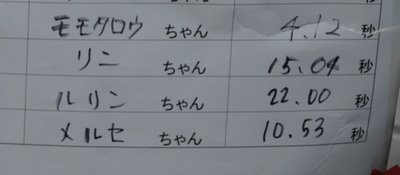 モモタロウ ちゃん 4.12 秒
リン ちゃん 15.09 秒
ルリン ちゃん 22.00 秒
メルセ ちゃん 10.53 秒